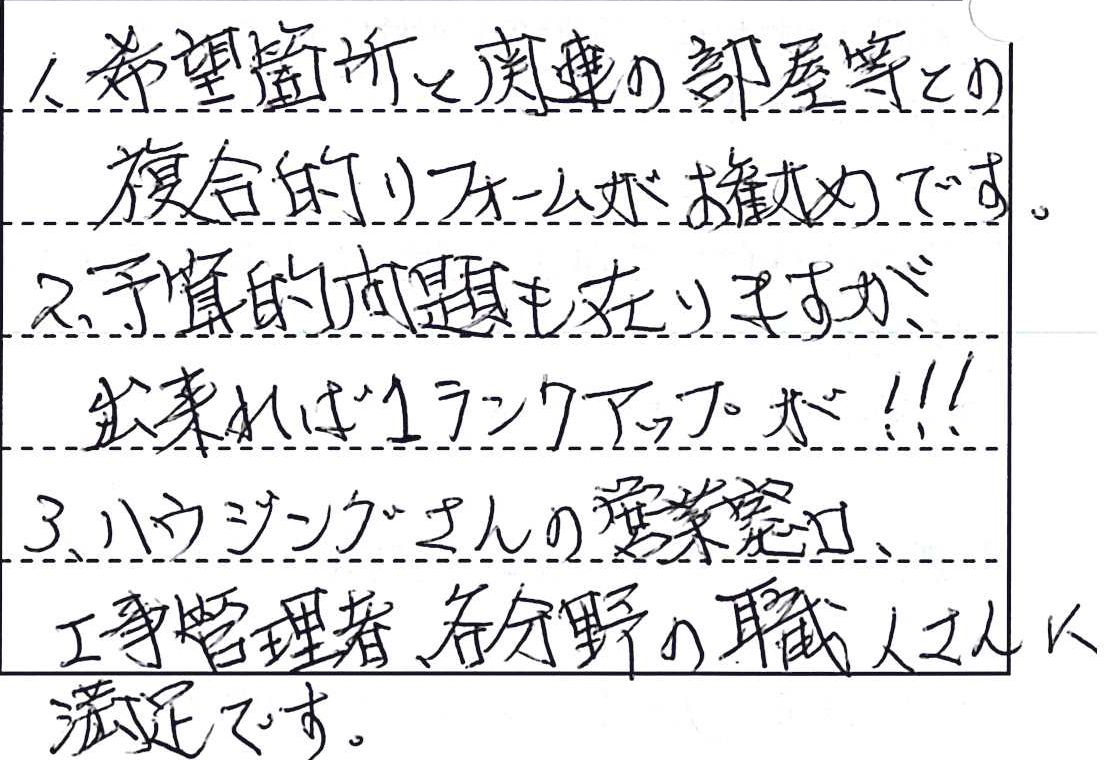 1、希望箇所と関連の部屋等との
複合的リフォームがお勧めです。
2、予算的問題も在りますが、
出来れば1ランクアップが!!!
3、ハウジングさんの営業窓口、
工事管理者、各分野の職人さんに
満足です。